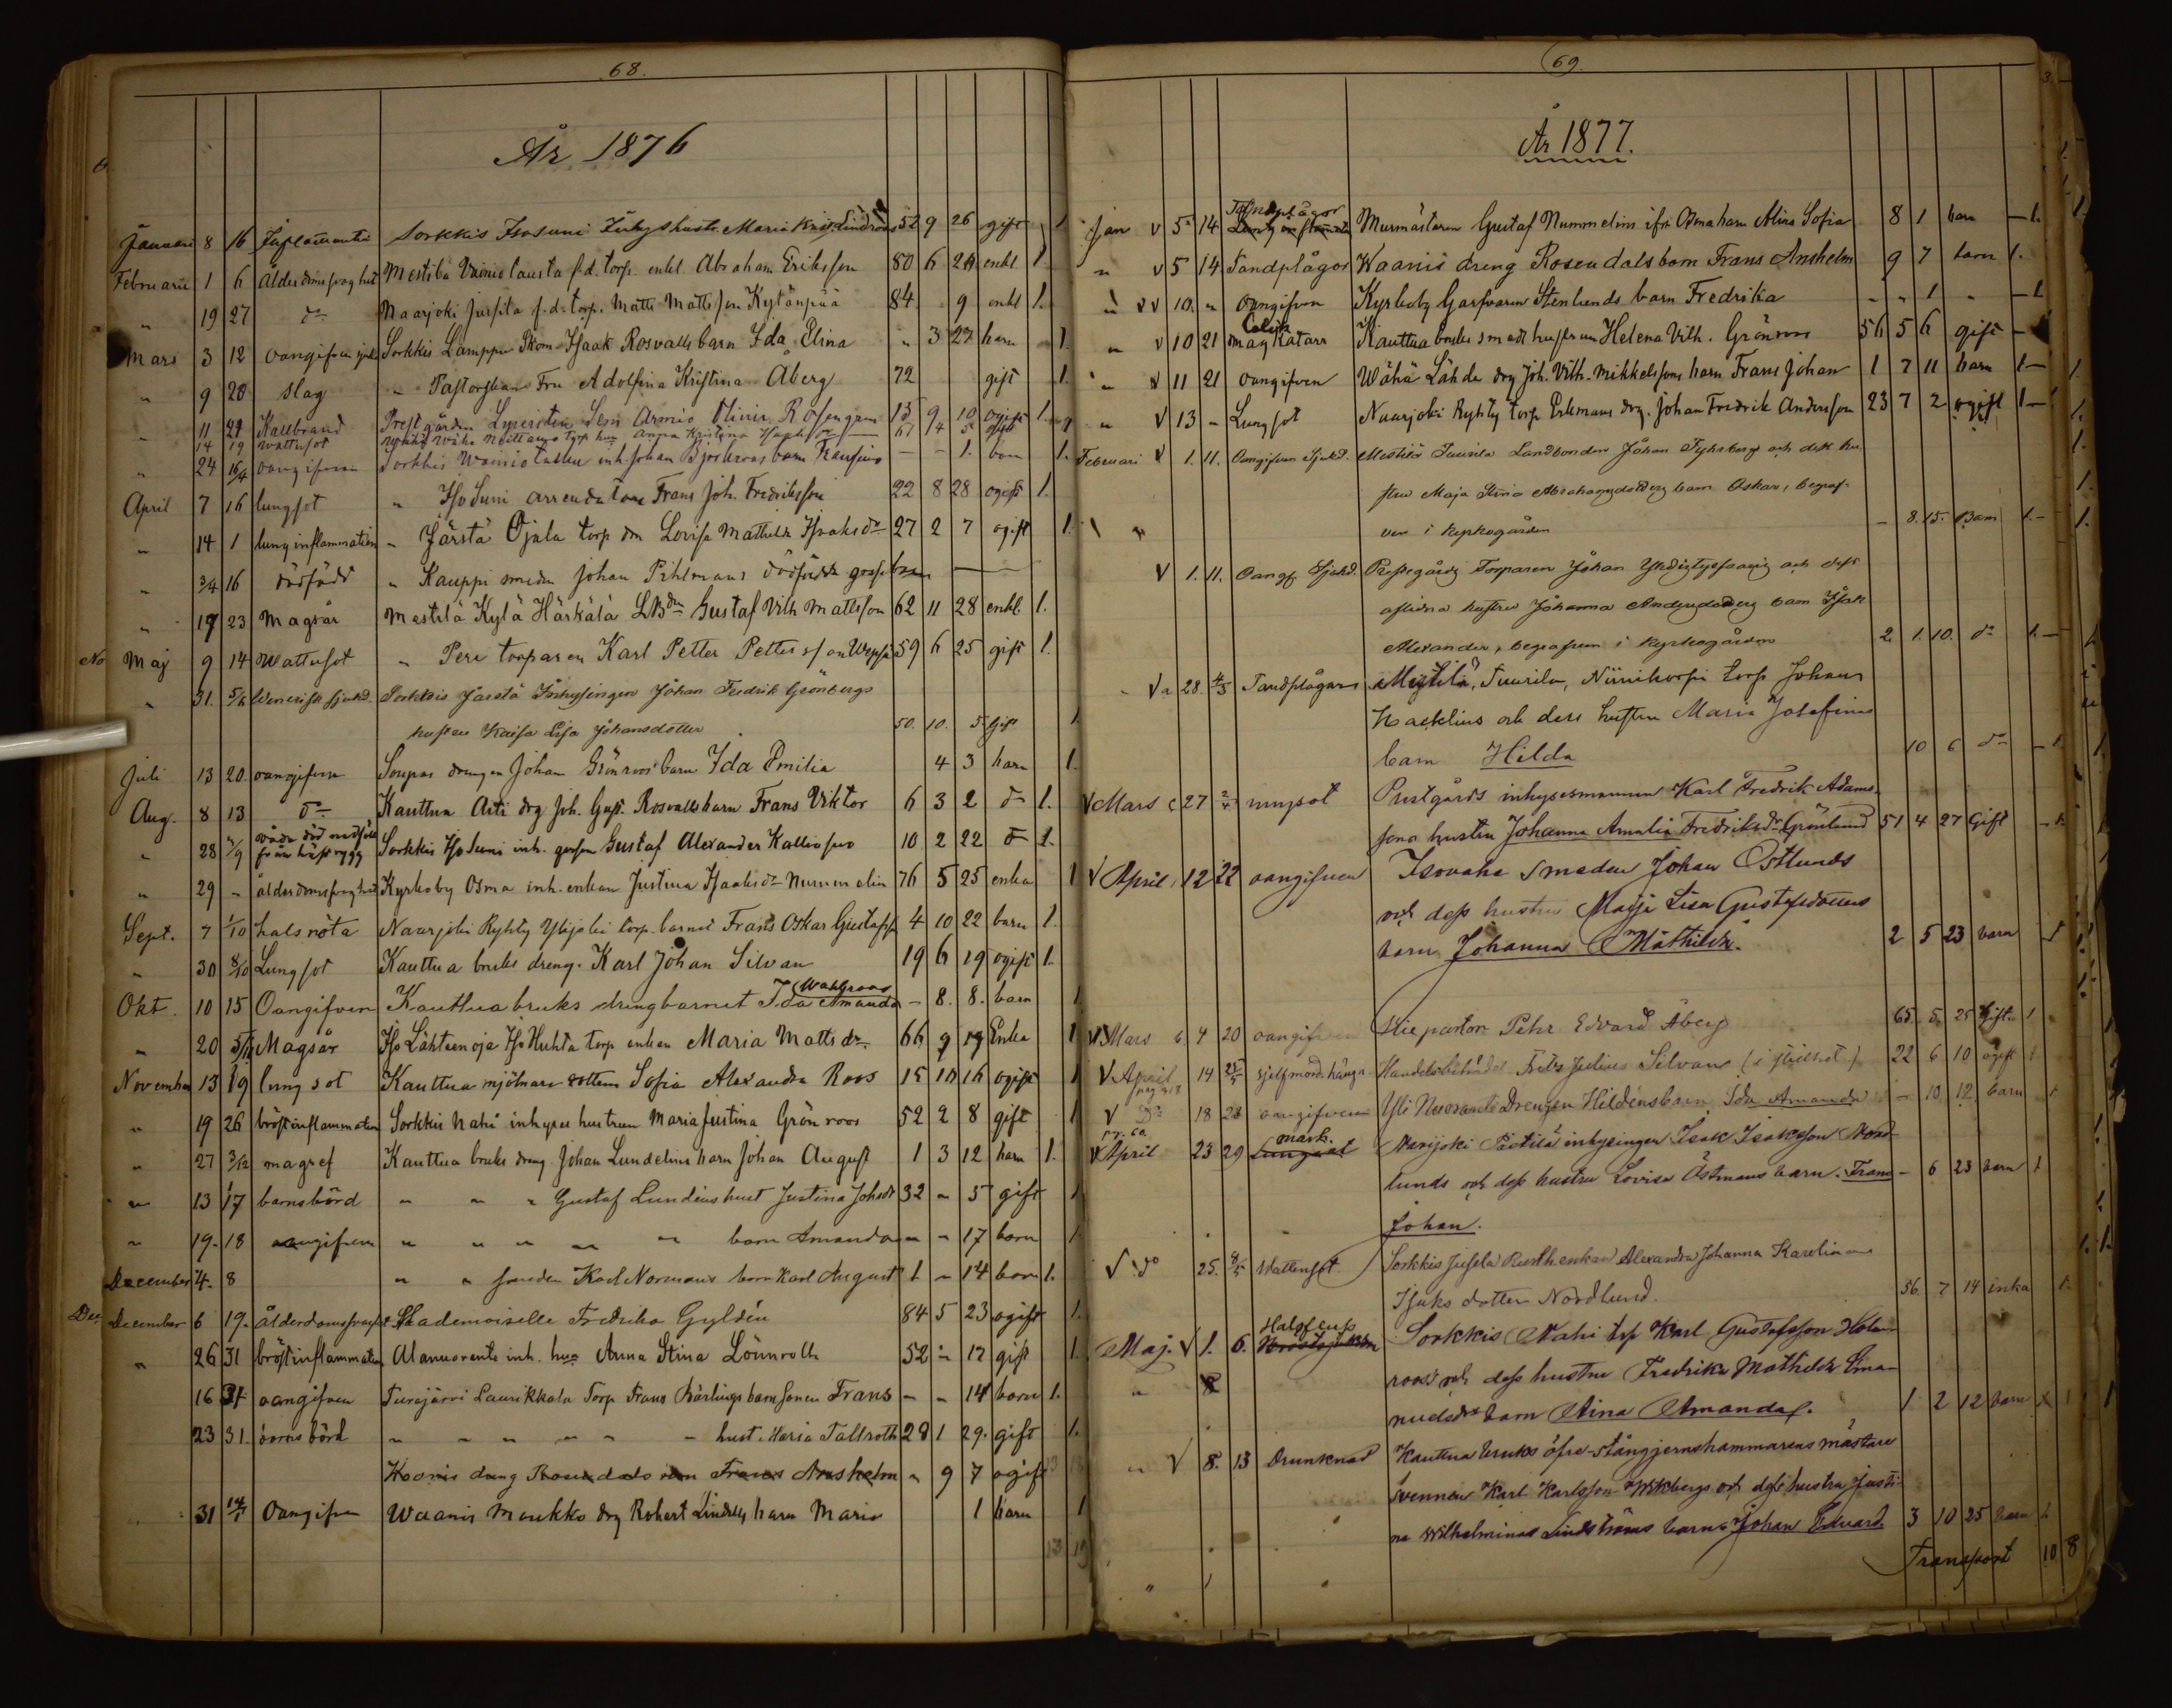 68.
År 1876
Januari 8 16 Inflammation Sorkkis Isosuni Inhys hustr. Maria Krist. Lindroos 52 9 26 gift 1
Februari 1 6 Ålderdomssvaghet Mestilä Vainiotausta f.d. torp. enkl. Abraham Eriksson 80 6 24 enkl 1
" 19 27 do Naarjoki Jussila f.d. torp. Matts Mattsson Kylänpää 84 9 enkl 1.
Mars 3 12 oangifven sjuk Sorkkis Lamppu Skom. Isaak Rosvalls barn Ida Elina " 3 27 barn 1.
" 9 20 slag " Pastorskan Fru Adolfina Kristina Åberg 72 gift 1.
" 11 21 Kallbrand Prestgården Lyceisten Leon Armio Olivier Rosengren 15 9 10 ogift 1.
14 19 Wattusot 67 4 5
" 24 16/4 oangifven Sorkkis Wainiotausta inh. Johan Björkroos barn - - 1. barn 1.
April 7 16 lungsot " Iso Suni arrendatorn Frans Joh. Fredriksson 22 8 28 ogift 1.
" 14 1 lunginflammation " Järstä Ojala torp. dr Lovisa Mathilda Isaksdr 27 2 7 ogift 1.
" 3/4 16 dödfödd " Kauppi smeden Johan Pihlmans dödfödda gosse barn
" 17 23 Magsår Mestilä Kylä Härkälä LBdn Gustaf Vilh Mattsson 62 11 28 enkl 1.
No Maj 9 14 Wattusot " Pere torparen Karl Petter Pettersson 59 6 25 gift 1.
" 31. 5/6 Venerisk sjukd. Sorkkis Järstä Inhysingen Johan Fredrik Grönbergs
hustru Kaisa Lisa Johansdotter 50. 10. 5 Gift 1
Juli 13 20. oangifven Soupas drengen Johan Grönroos' barn Ida Emilia 4 3 barn 1.
Aug. 8 13 do Kauttua Aiti drg Joh. Gust. Rosvalls barn Frans Viktor 6 3 2 do 1.
" 28 2/9 våda död nedföll från hästrygg Sorkkis Iso Suni inh. gosse Gustaf Alexander Kalliosuo 10 2 22 do 1.
" 29 - ålderdomssvaghet Kyrkoby Osma inh. enkan Justina Isaaksdr Nummelin 76 5 25 enka 1
Sept. 7 1/10 halsröta Naarjoki Ryhty Ylijoki torp. barnet Frans Oskar Gustafss. 4 10 22 barn 1.
" 30 8/10 Lungsot Kauttua bruks dreng. Karl Johan Silvan 19 6 19 ogift 1.
Okt. 10 15 Oangifven Kauttua bruks drengbarnet Ida Amanda (Wahlroos) - 8. 8. barn 1
" 20 5/11 Magsår Iso Lähteenoja Iso Huhta torp enkan Maria Mattsdr. 66 9 19 Enka 1
November 13 19 lungsot Kauttua mjölnare dottern Sofia Alexandra Roos 15 10 16 ogift 1
" 19 26 bröstinflammation Sorkkis Nahi inhyses hustrun Maria Justina Grönroos 52 2 8 gift 1
" 27 3/12 magref Kauttua bruks dreng. Johan Lundelins barn Johan August 1 3 12 barn 1.
" 13 17 barnsbörd " " " Gustaf Lundéns hust Justina Johsdr 32 " 5 gift 1
" 19. 18 oangifven " " " " " barn Amanda " " 17 barn 1
December 4. 8 " " smeden Karl Normans barn Karl August 1 - 14 barn 1.
Dec. December 6 19. ålderdomssvaghet Mademoiselle Fredrika Gyldén 84 5 23 ogift 1.
" 26 31 bröstinflammation Ala nuorento inh. hu Anna Stina Lönnroth 52 " 17 gift 1.
16 31 oangifven Turajärvi Laurikkala Torp. Frans Bärlings barn sonen Frans - - 14 barn 1.
23 31. barnsbörd " " " " " " hust. Maria Tallroth 28 1 29. gift 1.
Kaanis dreng Rosendals barn Frans Anshelm " 9 7 ogift
31 14/1 Oangifven Waanis Maukko drg Robert Lindells barn Maria 1 barn 1
13 19
69.
År 1877.
Jan v 5 14 Tandplågor Murmästaren Gustaf Nummelins ifr Osma barn Alina Sofia 8 1 barn - 1.
" v 5 14 Tandplågor Kaanis dreng Rosendals barn Frans Anshelm 9 7 barn 1.
" v v 10. " oangifven Kyrkoby Garfvaren Stenlunds barn Fredrika " " 1 " - 1
" v 10 21 Colik mag Katarr Kauttua bruks smeds hustrun Helena Vilh. Grönroos 56 5 6 gift -
" v 11 21 oangifven Wähä Lähde drg Joh. Vilh. Mikkelssons barn Frans Johan 1 7 11 barn 1 -
" v 13 - Lungsot Naarjoki Ryhty torp Erkmans drg. Johan Fredrik Andersson 23 7 2 ogift 1 -
Februari v 1. 11. Oangifven Sjukd. Mestilä Tuurila Landbonden Johan Fyhrberg och dess hu-
stru Maja Stina Abrahamsdotters barn Oskar, begraf-
ven i kyrkogården - 8. 15. Barn 1. -
v 1. 11. Oangf. Sjukd. Prestgårds Torparen Johan och dess
aflidna hustru Johanna Andersdotters barn Isak
Alexander, begrafven i kyrkogården 2 1. 10. do 1. -
v 28. 4/3 Tandplågor Mestilä, Tuurila, Niinikorpi torp Johan
Hacklins och dess hustru Maria Josefinas
barn Hilda 10 6 do - 1.
v Mars 27 2/4 lungsot Prestgårds inhysesmannen Karl Fredrik Adams-
sons hustru Johanna Amalia Fredriksdr Grönlund 51 4 27 Gift - 1.
v April 12 22 oangifven Isovahe smeden Johan Östlunds
och dess hustru Maja Lisa Gustafsdotters
barn Johanna Mathilda. 2 5 23 barn 1
v Mars 4 20 oangifven Vice pastor Pehr Edvard Åberg 65 5. 25 Gift 1
v April 14 25/5 sjelfmord hängn. Handelsbetjänten Frits Julius Silvan (i stillhet) 22 6 10 ogift 1
v Do 18 28 oangifven Yli Nuoranto Drengen Hildéns barn Ida Amanda - 10 12. barn 1
v April 23 29 mask. Lungsot Naarjoki Pietilä inhysingen Isak Isaksson Nord-
lunds och dess hustru Lovisa Östmans barn. Frans - 6 23 barn 1
Johan.
v do 25. 8/5 Wattensot Sorkkis Jussila enkan Alexandra Johanna Karolina
Isaks dotter Nordlund. 56 7 14 enka 1.
Maj. v 1. 6. Halsfluss Bröstsjukdom Sorkkis Nahi trp Karl Gustafsson Holm-
roos' och dess hustru Fredrika Mathilda Ema-
nuelsdrs barn Aina Amanda. 1 2 12 barn 1
" v 8. 13 Drunknad Kauttua bruks öfre-stångjernshammarens mästare
svennen Karl Karlsson Wikbergs och dess hustru Justi-
na Wilhelminas Lindströms barn Johan Edvard 3 10 25 barn 1
Transport 10 8